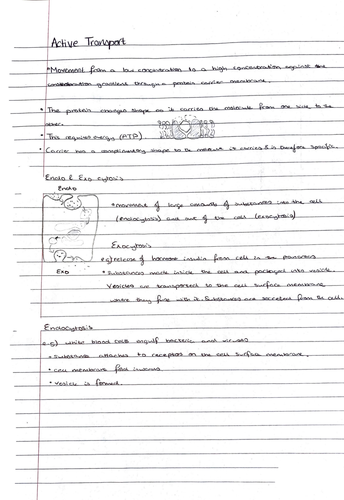 Active Transport
•Movement from a low concentration to a high concentration against the
concentration gradient through a protein carrier membrane.
• The protein changes shape as it carries the molecule from one side to the
other.
• This requires energy (ATP)
• Carrier has a complimentary shape to the molecule it carries & is therefore specific.
Endo & Exo cytosis
Endo
•movement of large amounts of substances into the cell
(endocytosis) and out of the cell (exocytosis)
Exocytosis
e.g) release of hormone insulin from cells in the pancreas
Exo
•Substances made inside the cell and packaged into vesicle.
Vesicles are transported to the cell surface membrane
where they fuse with it. Substances are secreted from the cell.
Endocytosis
e.g) white blood cells engulf bacteria and viruses
•substance attaches to receptors on the cell surface membrane.
• cell membrane fold inwards
• vesicle is formed.